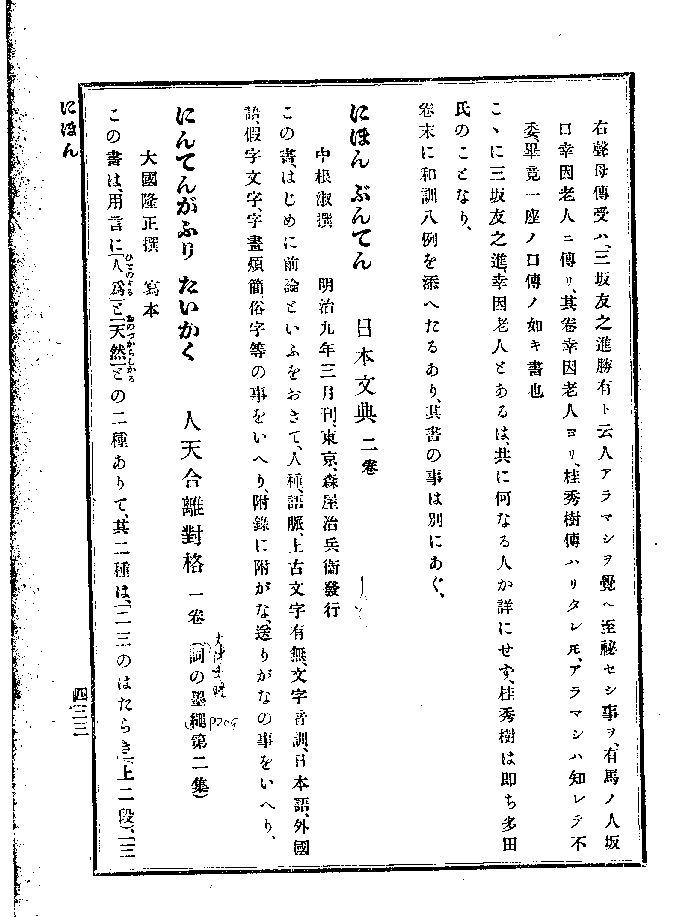 右聲母傳受ハ、三坂友之進勝有ト云人アラマシヲ覺ヘ至祕セシ事ヲ、有馬ノ人坂
口幸因老人ニ傳リ、其卷幸因老人ヨリ、桂秀樹傳ハリタレ𪜈、アラマシハ知レテ不
委、畢竟一座ノ口傳ノ如キ書也
こゝに三坂友之進、幸因老人とあるは、共に何なる人か詳にせず、桂秀樹は即ち多田
氏のことなり、
卷末に和訓八例を添へたるあり、其書の事は別にあぐ、
にほん ぶんてん 日本文典 二卷
中根淑撰 明治九年三月刊、東京、森屋治兵衞發行
この書、はじめに前論といふをおきて、人種、語脈、上古文字有無、文字音訓、日本語、外國
語、假字文字、字畫煩簡、俗字等の事をいへり、附錄に附がな、送りがなの事をいへり、
にんてんがふり たいかく 人天合離對格 一卷 (詞の墨繩第二集)
P209
大國隆正撰 寫本
この書は、用言に「人爲」と「天然」との二種ありて、其二種は、「二三のはたらき」(上二段)、「三
ひとのする
おのづからしかる
にほん
四三三